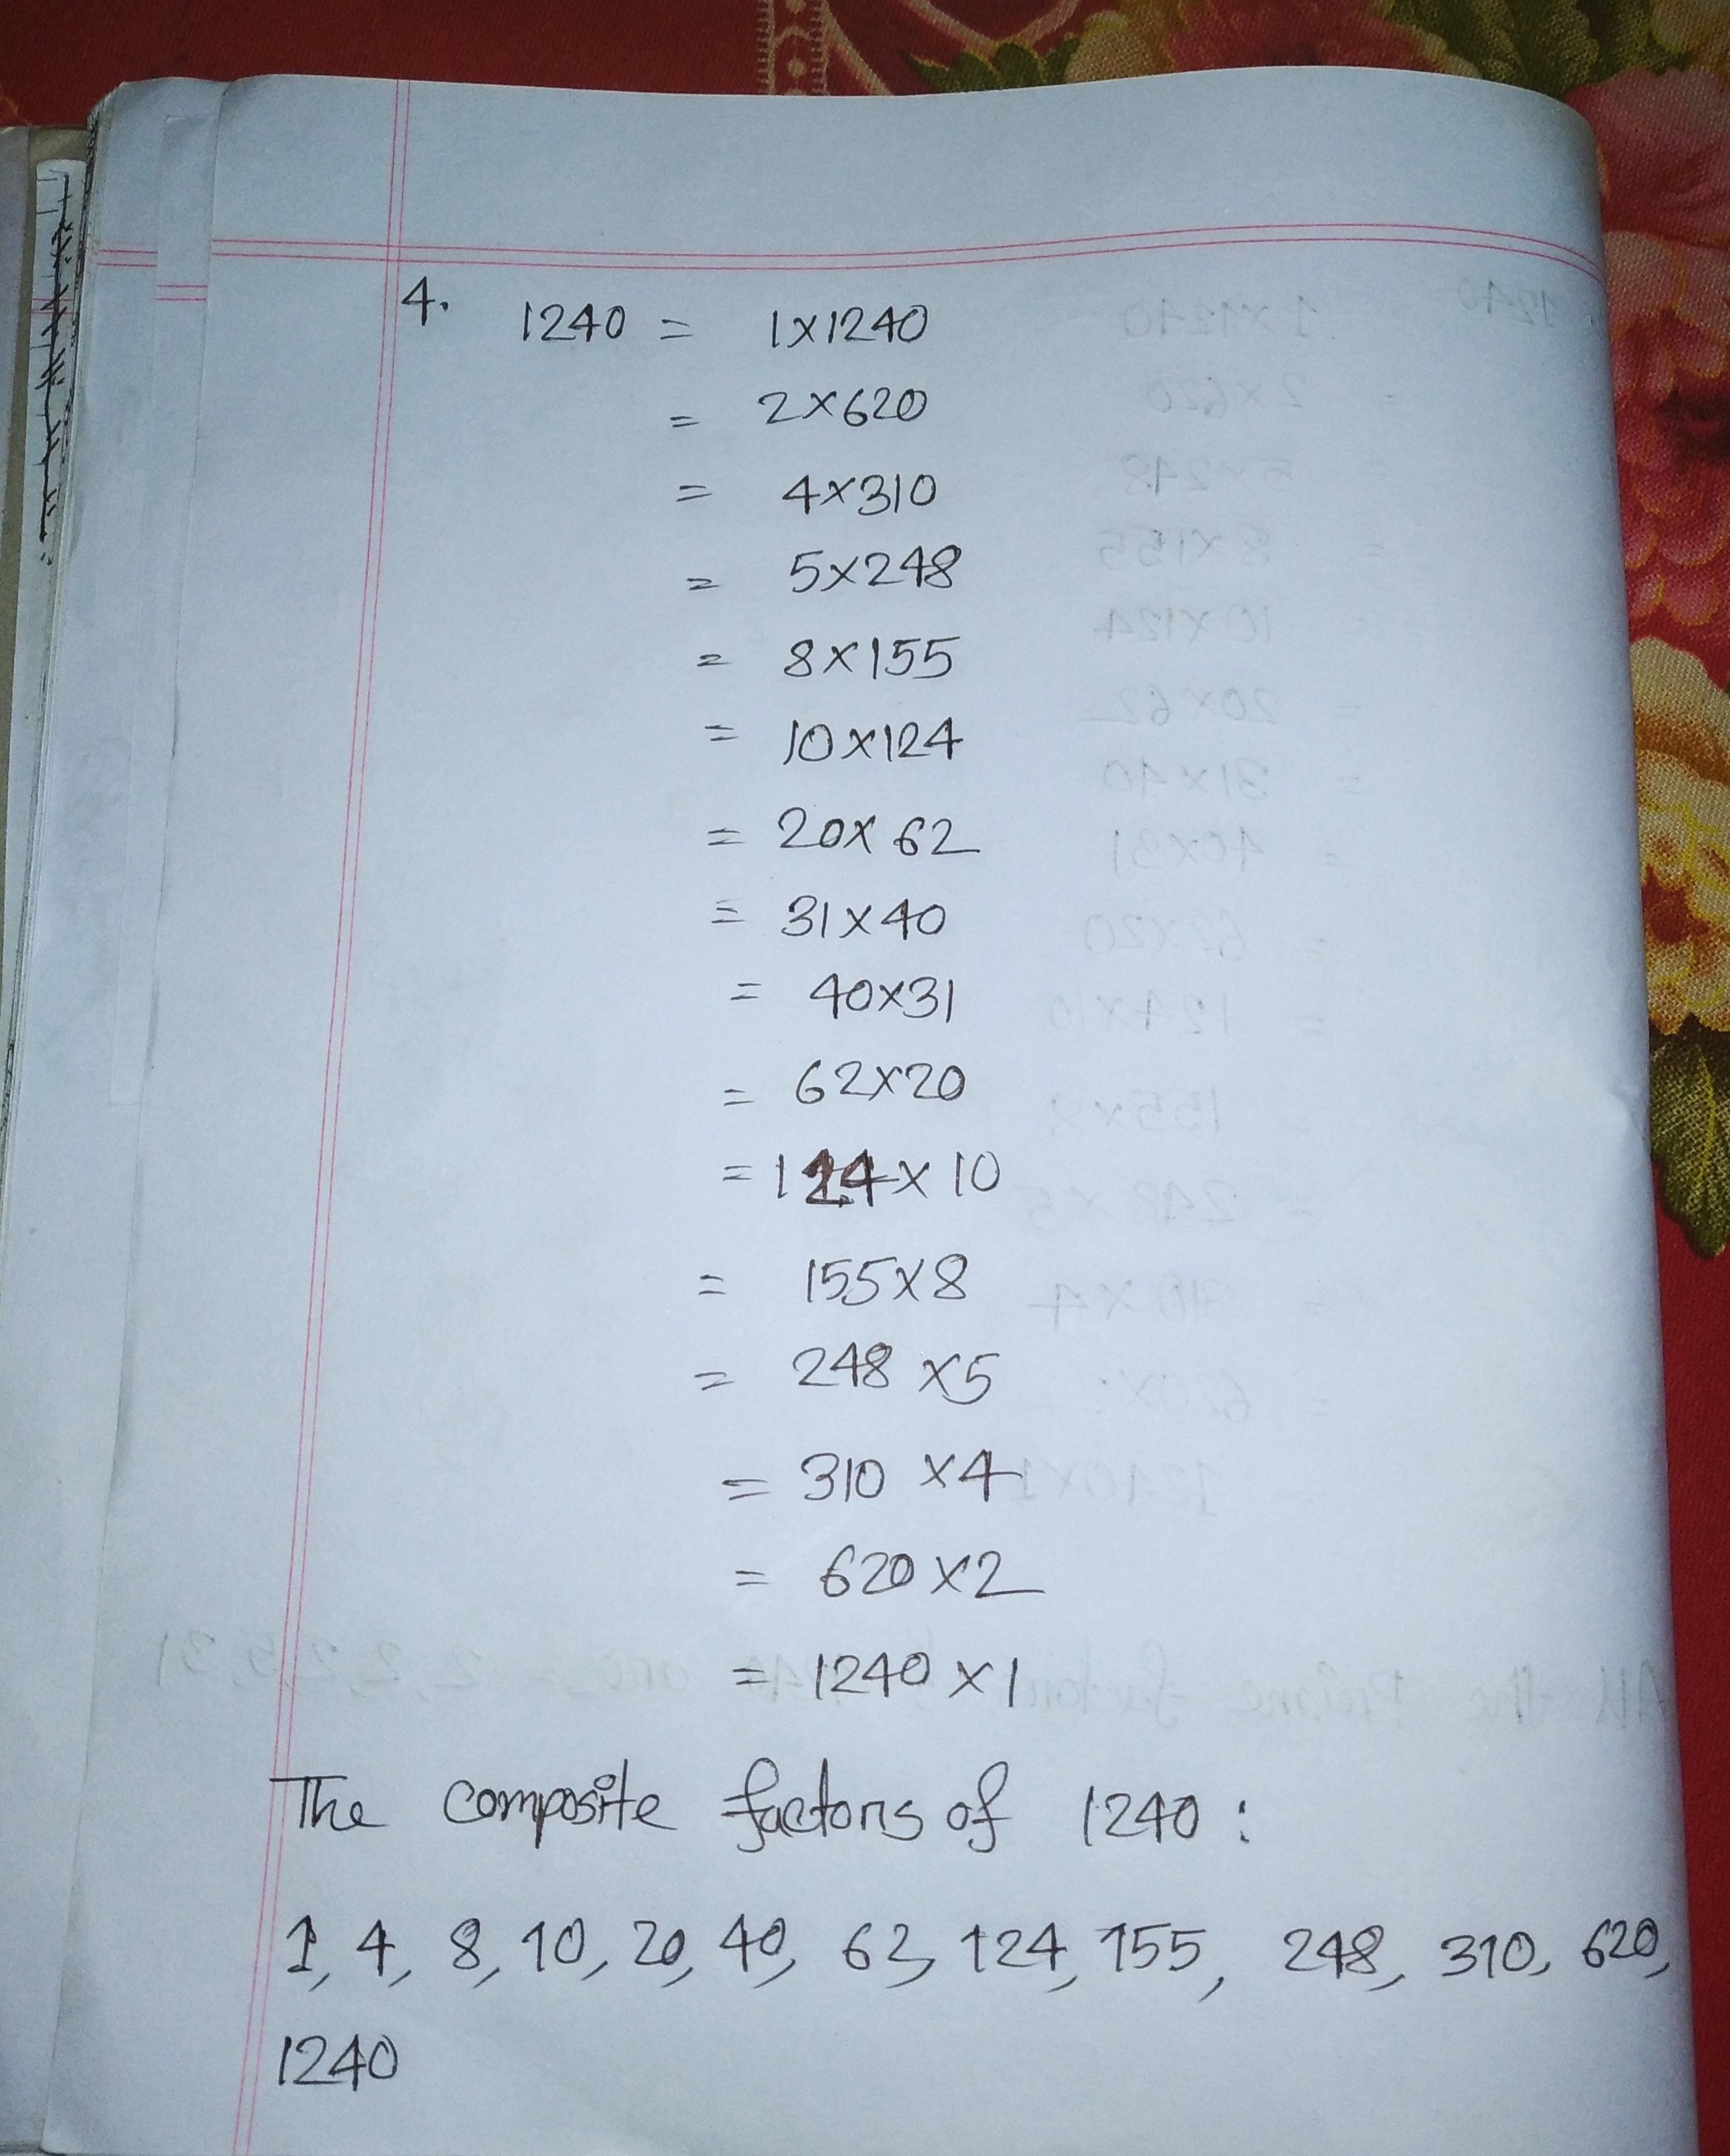 4. 1240 = 1×1240
= 2×620
= 4×310
= 5×248
= 8×155
= 10×124
= 20×62
= 31×40
= 40×31
= 62×20
= 124×10
= 155×8
= 248×5
= 310×4
= 620×2
= 1240×1
The composite factors of 1240:
1, 4, 8, 10, 20, 40, 62, 124, 155, 248, 310, 620,
1240